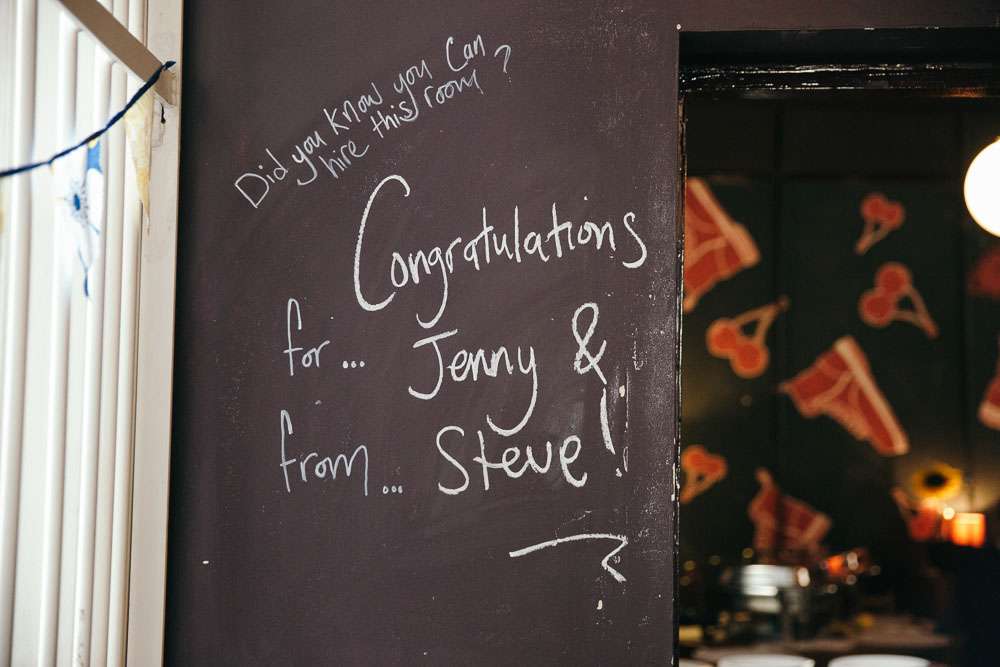 Did you know you Can
hire this room?
Congratulations
for... Jenny &
from... Steve!